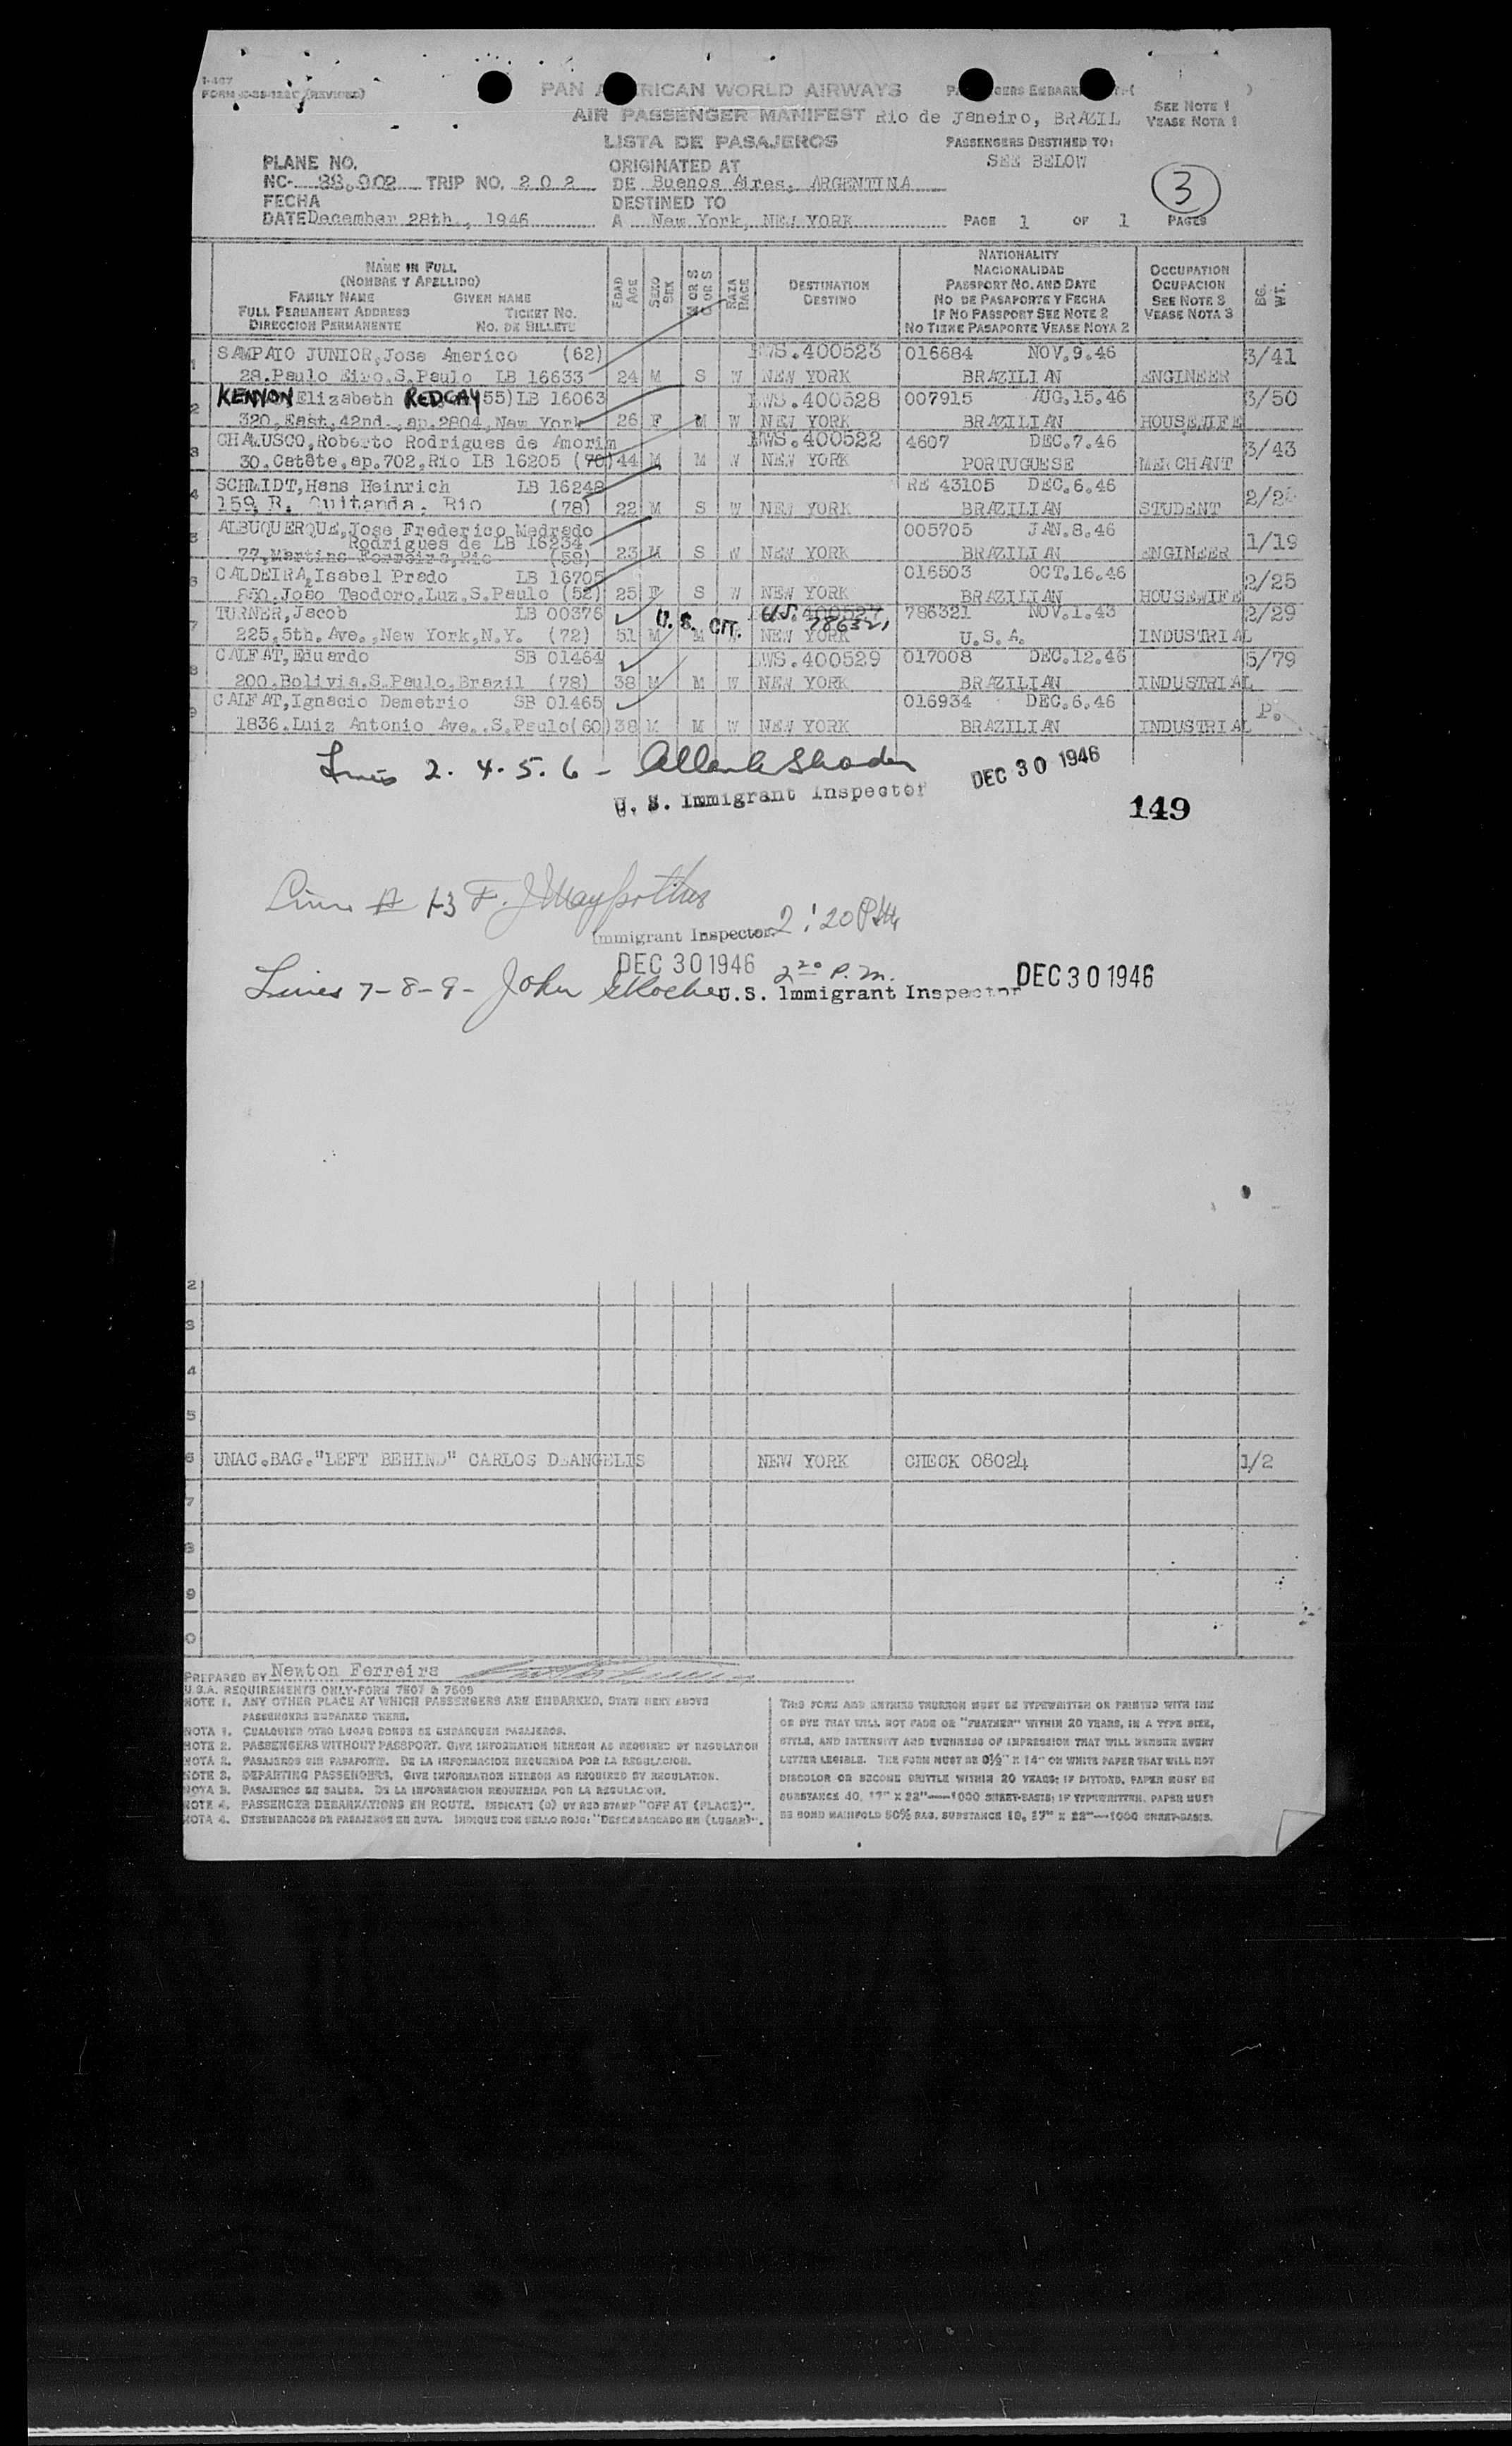 I-467
PAN AMERICAN WORLD AIRWAYS
AIR PASSENGER MANIFEST Rio de Janeiro, BRAZIL
SEE NOTE 1
VEASE NOTA 1
LISTA DE PASAJEROS
PASSENGERS DESTINED TO:
SEE BELOW
PLANE NO.
NC- 88.902 TRIP NO. 202
ORIGINATED AT
DE Buenos Aires, ARGENTINA
3
FECHA
DATE December 28th., 1946
DESTINED TO
A New York, NEW YORK
PAGE 1 OF 1 PAGES
NAME IN FULL
(NOMBRE Y APELLIDO)
FAMILY NAME GIVEN NAME
FULL PERMANENT ADDRESS TICKET NO.
DIRECCION PERMANENTE NO. DE BILLETE
EDAD AGE
SEXO SEX
M OR S
C OR S
RAZA RACE
DESTINATION
DESTINO
NATIONALITY
NACIONALIDAD
PASSPORT NO. AND DATE
NO DE PASAPORTE Y FECHA
IF NO PASSPORT SEE NOTE 2
NO TIENE PASAPORTE VEASE NOTA 2
OCCUPATION
OCUPACION
SEE NOTE 3
VEASE NOTA 3
BG. WT.
1 SAMPAIO JUNIOR, Jose Americo (62) WS.400523 016684 NOV.9.46 3/41
28.Paulo Eiro.S.Paulo LB 16633 24 M S W NEW YORK BRAZILIAN ENGINEER
2 KENYON Elizabeth REDGAY 55) LB 16063 WS.400528 007915 AUG.15.46 3/50
320,East,42nd.,ap.2804,New York 26 F M W NEW YORK BRAZILIAN HOUSEWIFE
3 CHAMUSCO, Roberto Rodrigues de Amorim WS.400522 4607 DEC.7.46 3/43
30.Catete.ap.702,Rio LB 16205 (70) 44 M M W NEW YORK PORTUGUESE MERCHANT
4 SCHMIDT, Hans Heinrich LB 16248 RE 43105 DEC.6.46
159, R. Quitanda. Rio (78) 22 M S W NEW YORK BRAZILIAN STUDENT
5 ALBUQUERQUE, Jose Frederico Medrado 005705 JAN.8.46 1/19
Rodrigues de LB 16234
77,Martins Ferreira,Rio (58) 23 M S W NEW YORK BRAZILIAN ENGINEER
6 CALDEIRA, Isabel Prado LB 16705 016503 OCT.16.46 2/25
850.João Teodoro.Luz.S.Paulo (52) 25 F S W NEW YORK BRAZILIAN HOUSEWIFE
7 TURNER, Jacob LB 00376 U.S. CIT. U.S. 400527 786321 786321 NOV.1.43 2/29
225,5th. Ave.,New York,N.Y. (72) 51 M M NEW YORK U.S.A. INDUSTRIAL
8 CALFAT, Eduardo SB 01464 WS.400529 017008 DEC.12.46 5/79
200.Bolivia.S.Paulo,Brazil (78) 38 M M W NEW YORK BRAZILIAN INDUSTRIAL
9 CALFAT, Ignacio Demetrio SB 01465 016934 DEC.6.46 P.
1836.Luiz Antonio Ave..S.Paulo (60) 38 M M W NEW YORK BRAZILIAN INDUSTRIAL
Lines 2. 4. 5. 6 -
DEC 30 1946
U. S. Immigrant Inspector
149
1-3
Immigrant Inspector. 2:20 PM
DEC 30 1946 2 20 P.M.
Lines 7-8-9- John
U.S. Immigrant Inspector DEC 30 1946
2
3
4
5
6 UNAC.BAG."LEFT BEHIND" CARLOS DEANGELIS NEW YORK CHECK 08024 1/2
7
8
9
0
PREPARED BY Newton Ferreira
U.S.A. REQUIREMENTS ONLY-FORM 7507 & 7509
NOTE 1. ANY OTHER PLACE AT WHICH PASSENGERS ARE EMBARKED, STATE NEXT ABOVE
PASSENGERS EMBARKED THERE.
NOTA 1. CUALQUIER OTRO LUGAR DONDE SE EMBARQUEN PASAJEROS.
NOTE 2. PASSENGERS WITHOUT PASSPORT. GIVE INFORMATION HEREON AS REQUIRED BY REGULATION
NOTA 2. PASAJEROS SIN PASAPORTE. DE LA INFORMACION REQUERIDA POR LA REGULACION.
NOTE 3. DEPARTING PASSENGERS. GIVE INFORMATION HEREON AS REQUIRED BY REGULATION.
NOTA 3. PASAJEROS DE SALIDA. DE LA INFORMACION REQUERIDA POR LA REGULACION.
NOTE 4. PASSENGER DEBARKATIONS EN ROUTE. INDICATE (D) BY RED STAMP "OFF AT (PLACE)".
NOTA 4. DESEMBARCOS DE PASAJEROS EN RUTA. INDIQUE CON SELLO ROJO: "DESEMBARCADO EN (LUGAR)".
THIS FORM AND ENTRIES THEREON MUST BE TYPEWRITTEN OR PRINTED WITH INK
OR DYE THAT WILL NOT FADE OR "FEATHER" WITHIN 20 YEARS, IN A TYPE SIZE,
STYLE, AND INTENSITY AND EVENNESS OF IMPRESSION THAT WILL RENDER EVERY
LETTER LEGIBLE. THE FORM MUST BE 8½" X 14" ON WHITE PAPER THAT WILL NOT
DISCOLOR OR BECOME BRITTLE WITHIN 20 YEARS; IF DITTOED, PAPER MUST BE
SUBSTANCE 40, 17" X 22"—1000 SHEET-BASIS; IF TYPEWRITTEN, PAPER MUST
BE BOND MANIFOLD 50% RAG, SUBSTANCE 18, 17" X 22"—1000 SHEET-BASIS.